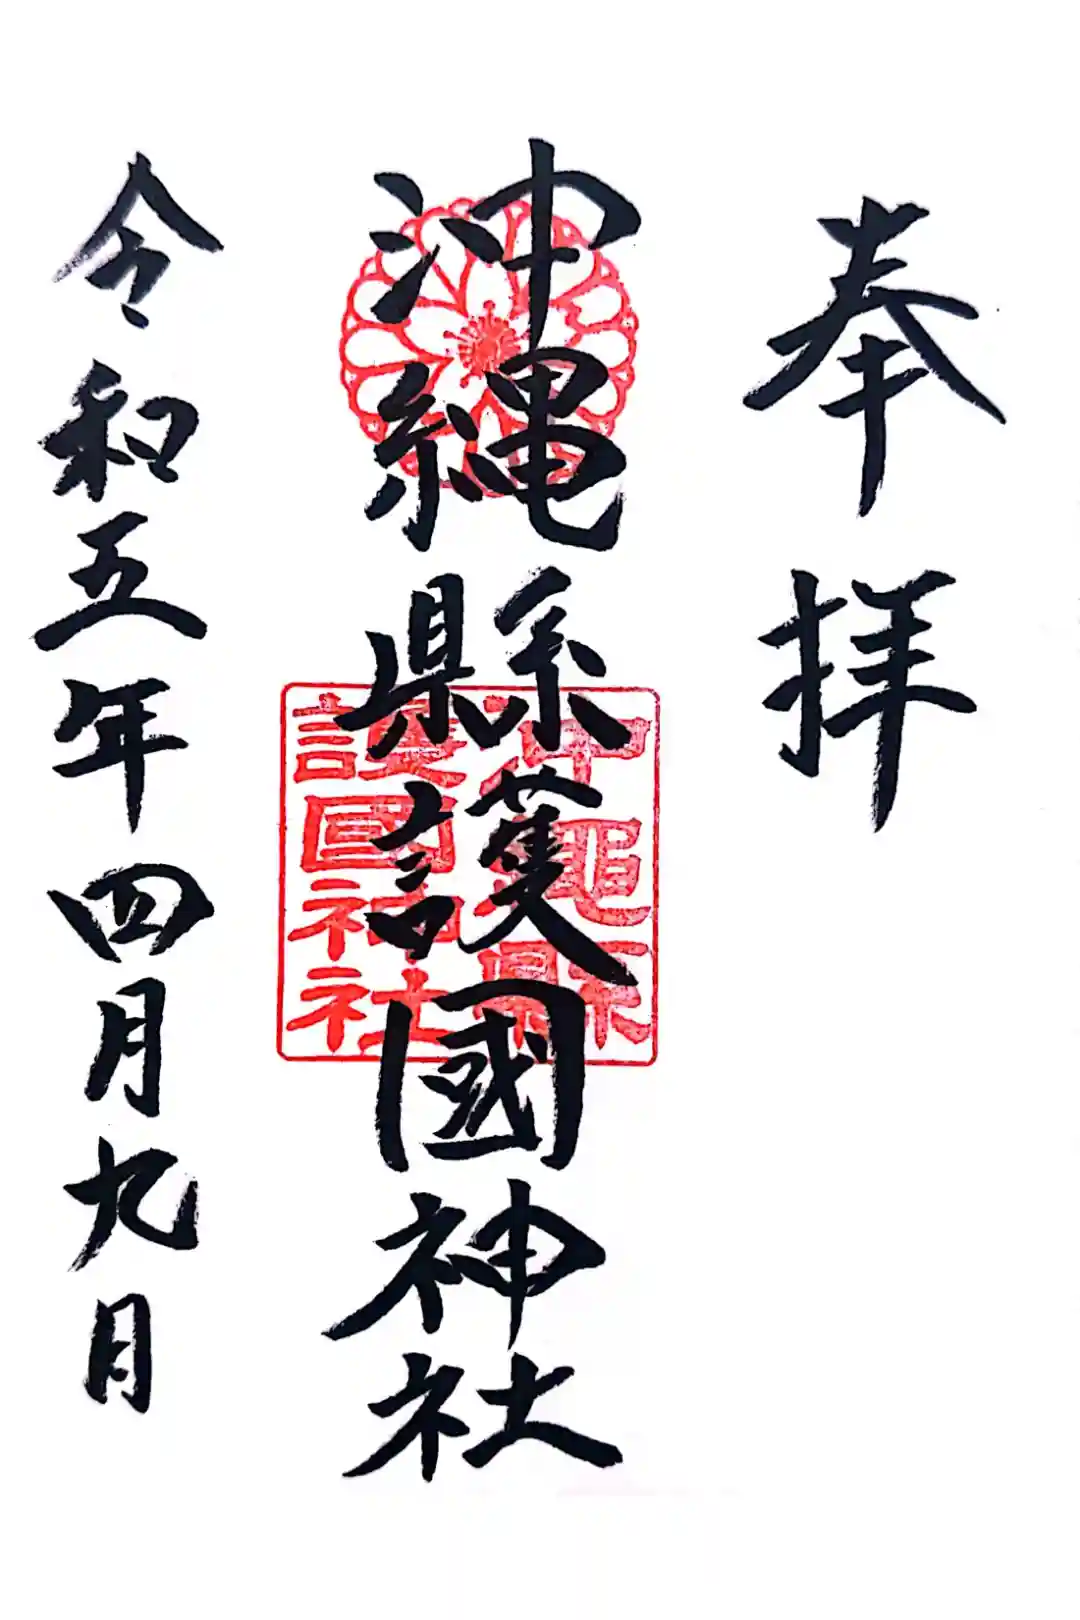 奉拝
沖縄縣護國神社
沖縄縣
護國神社
令和五年四月九日